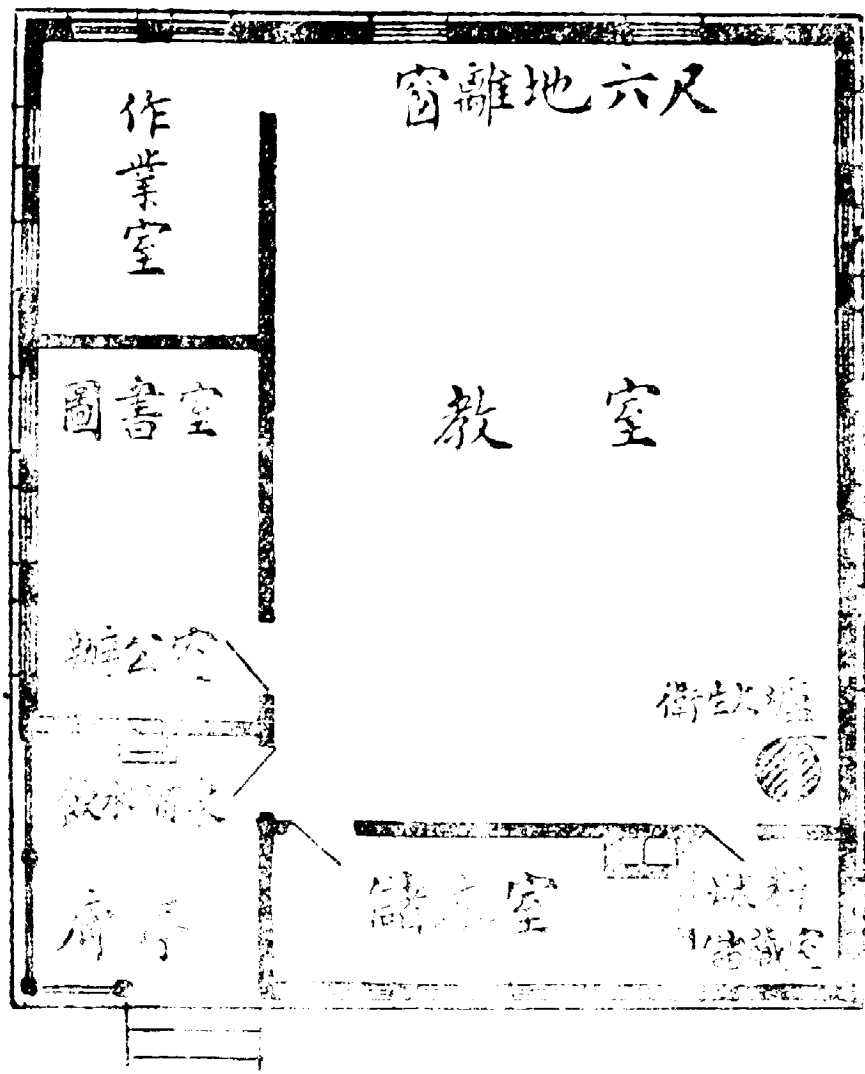 窗離地六尺
作業室
圖書室
教室
辦公室
衛生火爐
飲水
儲衣室
燃料
儲藏室
廊子